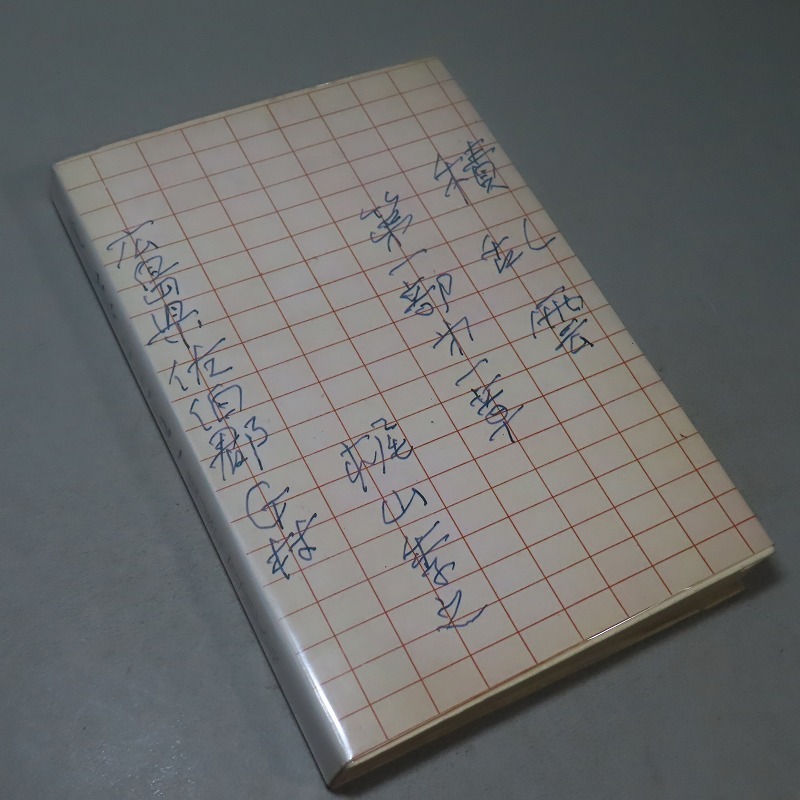 積乱雲
第一部才一章
梶山季之
広島県佐伯郡 村